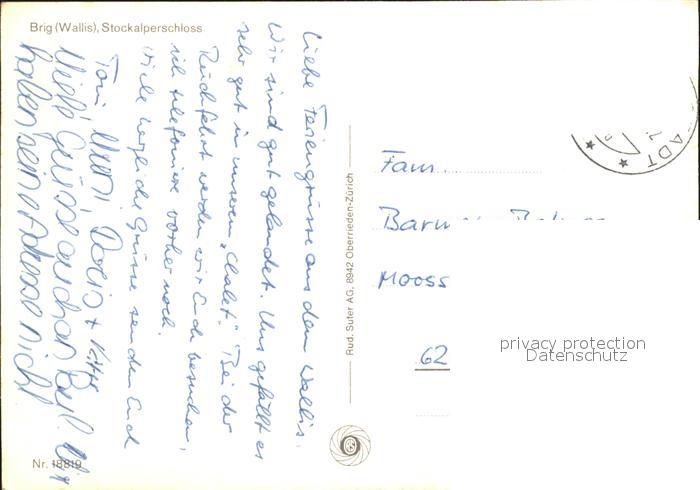 Brig (Wallis), Stockalperschloss
Liebe Feriengrüsse aus dem Wallis.
Wir sind gut gelandet. Uns gefällt es
sehr gut in unserem „Chalet". Bei der
Rückfahrt werden wir Euch besuchen,
ich telefoniere vorher noch.
Viele herzliche Grüsse senden Euch
Toni, Doris +
Wir
haben seine Adresse nicht
Nr. 18819
Rud. Suter AG, 8942 Oberrieden-Zürich
ADT
Fam.
Mooss
62
privacy protection
Datenschutz